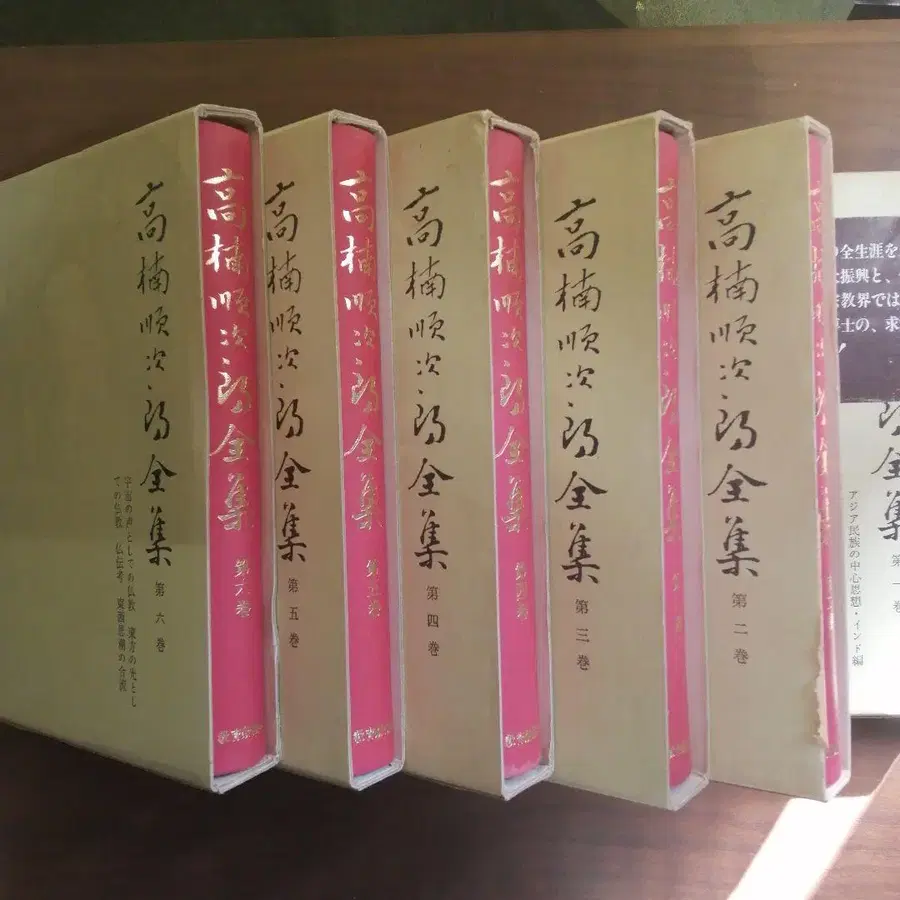 高楠順次郎全集 第六巻
宇宙の声としての仏教 東方の光とし
ての仏教 仏伝考 東西思潮の合流
高楠順次郎全集 第六巻
高楠順次郎全集 第五巻
高楠順次郎全集 第五巻
高楠順次郎全集 第四巻
高楠順次郎全集 第四巻
高楠順次郎全集 第三巻
高楠順次郎全集
高楠順次郎全集 第二巻
高楠順次郎全集
の全生涯を
振興と、
教界では
士の、求
全集 第一巻
アジア民族の中心思想・インド編